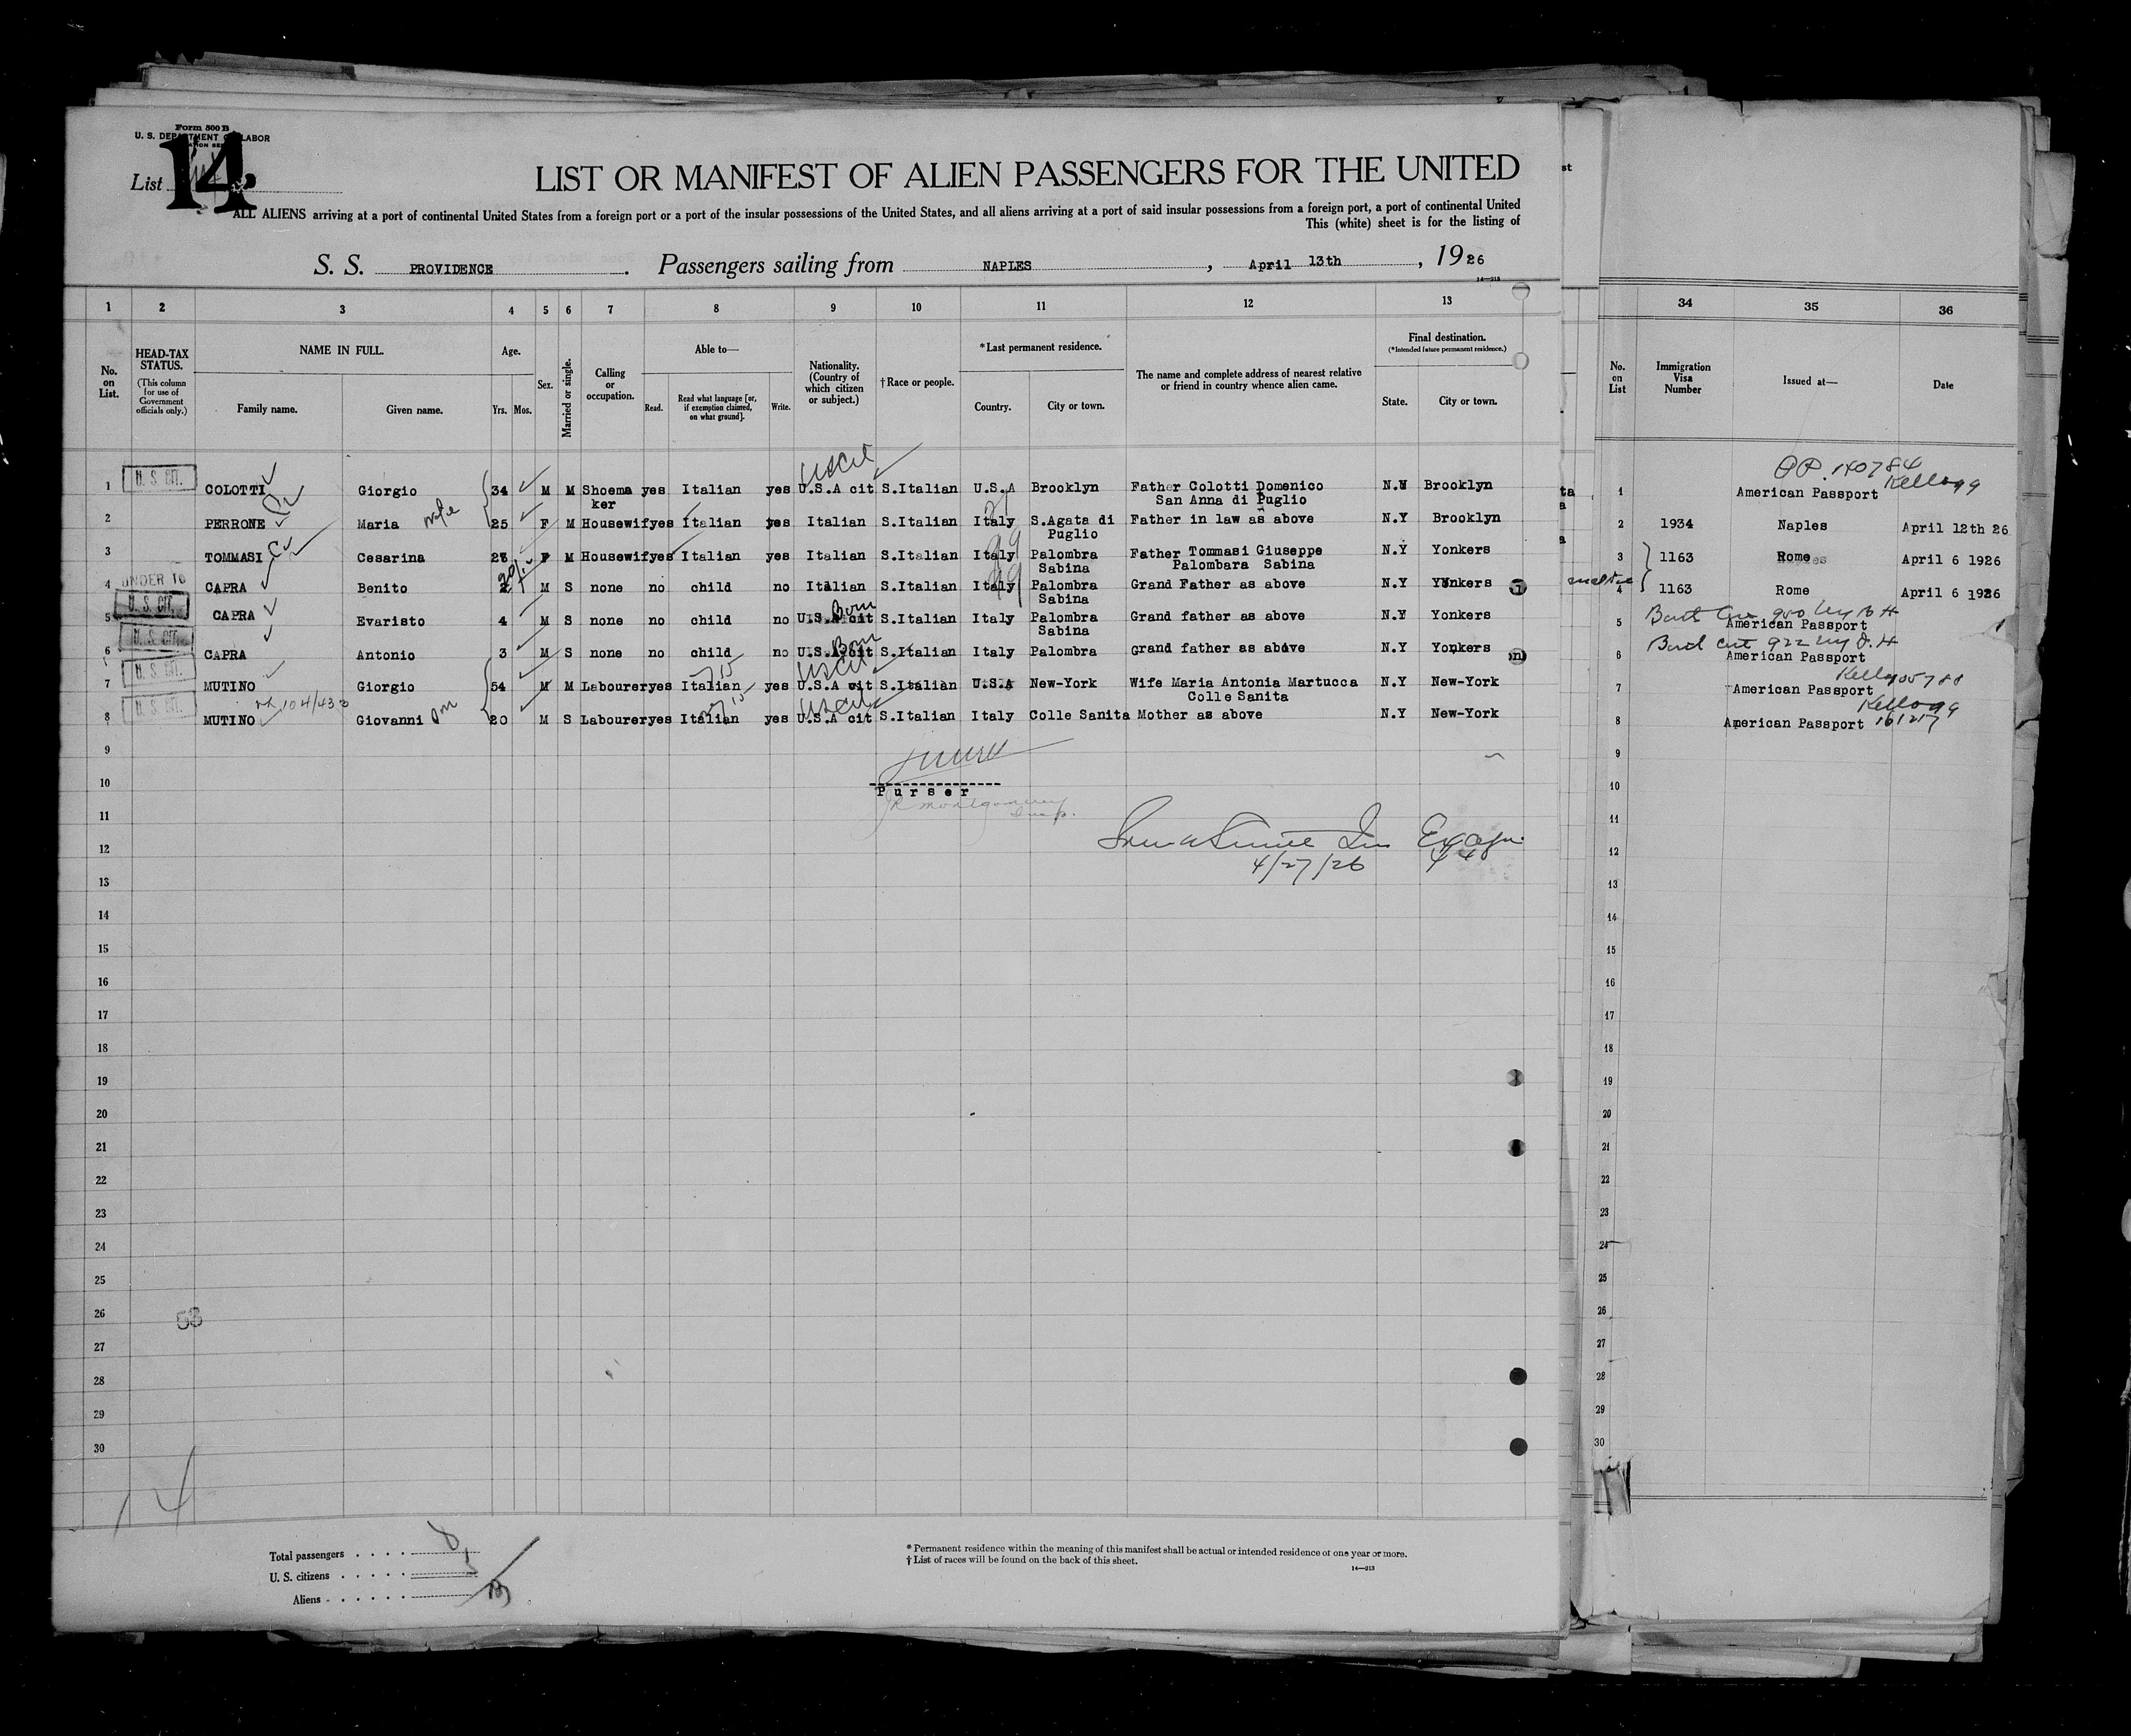 Form 500 B
U. S. DEPARTMENT OF LABOR
List 14
LIST OR MANIFEST OF ALIEN PASSENGERS FOR THE UNITED
ALL ALIENS arriving at a port of continental United States from a foreign port or a port of the insular possessions of the United States, and all aliens arriving at a port of said insular possessions from a foreign port, a port of continental United
This (white) sheet is for the listing of
S. S. PROVIDENCE. Passengers sailing from NAPLES, April 13th, 1926
14—213
1 2 3 4 5 6 7 8 9 10 11 12 13 34 35 36
No. on List.
HEAD-TAX STATUS. (This column for use of Government officials only.)
NAME IN FULL.
Family name. Given name.
Age.
Yrs. Mos.
Sex.
Married or single.
Calling or occupation.
Able to—
Read. Read what language [or, if exemption claimed, on what ground]. Write.
Nationality. (Country of which citizen or subject.)
†Race or people.
*Last permanent residence.
Country. City or town.
The name and complete address of nearest relative or friend in country whence alien came.
Final destination.
(*Intended future permanent residence.)
State. City or town.
No. on List
Immigration Visa Number
Issued at—
Date
1 U. S. CIT. COLOTTI Giorgio 34 M M Shoema ker yes Italian yes U.S.A cit S.Italian U.S.A Brooklyn Father Colotti Domenico San Anna di Puglio N.Y Brooklyn 1 American Passport PP. 140784 Kellogg
2 PERRONE Maria wife 25 F M Housewif yes Italian yes Italian S.Italian Italy S.Agata di Puglio Father in law as above N.Y Brooklyn 2 1934 Naples April 12th 26
3 TOMMASI Cesarina F M Housewif yes Italian yes Italian S.Italian Italy Palombra Sabina Father Tommasi Giuseppe Palombara Sabina N.Y Yonkers 3 1163 Rome April 6 1926
4 UNDER 16 CAPRA Benito M S none no child no Italian S.Italian Italy Palombra Sabina Grand Father as above N.Y Yonkers 4 1163 Rome April 6 1926
5 U. S. CIT. CAPRA Evaristo 4 M S none no child no U.S.A cit Born S.Italian Italy Palombra Sabina Grand father as above N.Y Yonkers 5 American Passport
6 U. S. CIT. CAPRA Antonio 3 M S none no child no U.S.A cit Born S.Italian Italy Palombra Grand father as above N.Y Yonkers 6 American Passport
7 U. S. CIT. MUTINO Giorgio 54 M M Labourer yes Italian yes U.S.A cit S.Italian U.S.A New-York Wife Maria Antonia Martucca Colle Sanita N.Y New-York 7 American Passport
8 U. S. CIT. MUTINO Giovanni 20 M S Labourer yes Italian yes U.S.A cit S.Italian Italy Colle Sanita Mother as above N.Y New-York 8 American Passport Kellogg
9 9
10 Purser 10
11 11
12 4/27/26 12
13 13
14 14
15 15
16 16
17 17
18 18
19 19
20 20
21 21
22 22
23 23
24 24
25 25
26 58 26
27 27
28 28
29 29
30 30
14
Total passengers . . . . 8
U. S. citizens . . . . . 5
Aliens . . . . . . 3
* Permanent residence within the meaning of this manifest shall be actual or intended residence of one year or more.
† List of races will be found on the back of this sheet.
14—213